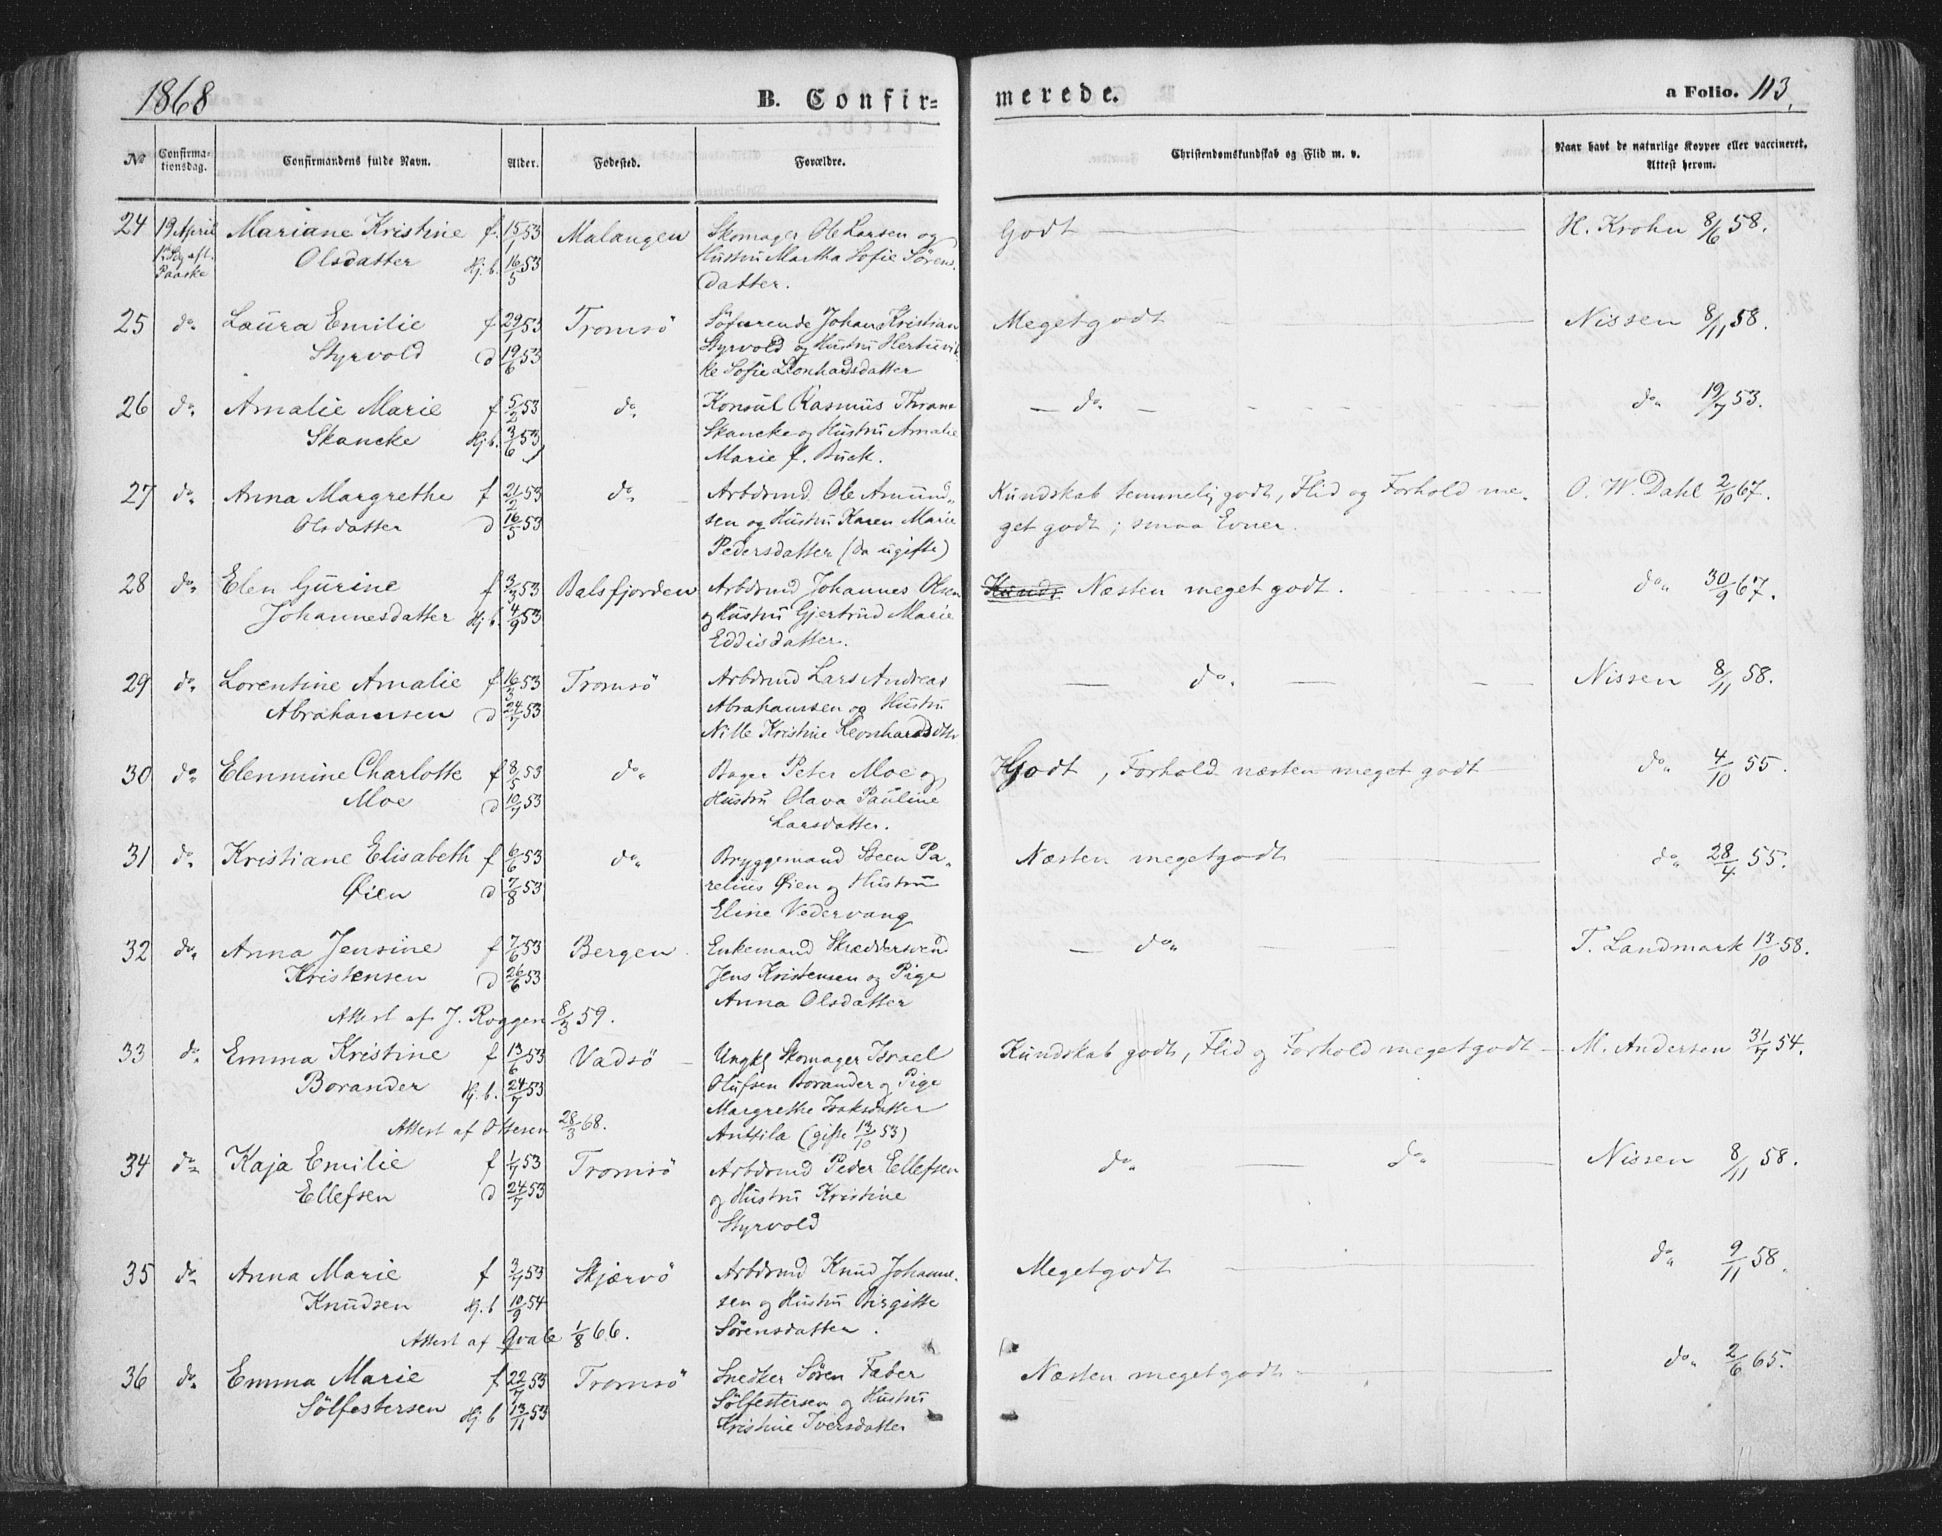 1868
B. Confir=
merede.
a Folio. 113.
No
Confirma-
tionsdag.
Confirmandens fulde Navn.
Alder.
Fødested.
Forældre.
Christendomskundskab og Flid m. v.
Naar havt de naturlige Kopper eller vaccineret.
Attest herom.
24 19 April Mariane Kristine f. 15/1 53 Malangen Skomager Ole Larsen og Godt H. Krohn 8/6 58.
1ste Sg. eft. Olsdatter Hj. b. 16/5 53 Hustru Martha Sofie Sörens-
Paaske datter.
25 do. Laura Emilie f 29/1 53 Tromsö Söfarende Johan Kristian Megetgodt Nissen 8/11 58.
Styrvold d 19/6 53 Styrvold og Hustru Hertevik-
ke Sofie Leonhardsdatter
26 do. Amalie Marie f 5/2 53 do. Konsul Rasmus Thrane do. do. 19/7 53.
Skancke Hj. b. 3/6 53 Skancke og Hustru Amalie
Marie f. Buck.
27 do. Anna Margrethe f 21/2 53 do. Arbdmd. Ole Amund- Kundskab temmelig godt, Flid og Forhold me- O. W. Dahl 2/10 67.
Olsdatter d 16/5 53 sen og Hustru Karen Marie get godt; smaa Evner.
Pedersdatter (da ugifte)
28 do. Elen Gurine f 3/3 53 Balsfjorden Arbdmd Johannes Olsen Kunds. Næsten meget godt. do. 30/9 67.
Johannesdatter Hj. b. 4/9 53 og Hustru Gjertrud Marie
Eddisdatter.
29 do. Lorentine Amalie f 16/3 53 Tromsö Arbdmd Lars Andreas do. Nissen 8/11 58.
Abrahamsen d 24/7 53 Abrahamsen og Hustru
Nille Kristine Leonhardsdtr
30 do. Elenmine Charlotte f 8/5 53 do. Bager Peter Moe og Godt, Forhold næsten meget godt do. 4/10 55.
Moe d 10/7 53 Hustru Olava Pauline
Larsdatter.
31 do. Kristiane Elisabeth f 6/6 53 do. Bryggemand Steen Pa- Næsten megetgodt do. 28/4 55.
Øien d 7/8 53 relius Øien og Hustru
Eline Vedervang
32 do. Anna Jensine f 7/6 53 Bergen. Enkemand Skræddersvend do. T. Landmark 13/10 58.
Kristensen d 26/6 53 Jens Kristensen og Pige
Anna Olsdatter
Attest af J. Roggen 8/3 59.
33 do. Emma Kristine f 13/6 53 Vadsö Ungkl Skomager Israel Kundskab godt, Flid og Forhold megetgodt M. Andersen 31/7 54.
Borander Hj. b. 24/7 53 Olufsen Borander og Pige
Margrethe Isaksdatter
Attest af Ottesen 28/3 68. Anttila (gifte 13/10 53)
34 do. Kaja Emilie f 1/7 53 Tromsö Arbdmd Peder Ellefsen do. do. Nissen 8/11 58.
Ellefsen d 24/7 53 og Hustru Kristine
Styrvold
35 do. Anna Marie f 3/7 53 Skjærvö Arbdmd Knud Johanne- Megetgodt do. 9/11 58.
Knudsen Hj. b 10/9 54 sen og Hustru Birgitte
Attest af Qvale 1/8 66. Sörensdatter.
36 do. Emma Marie f 22/7 53 Tromsö Snedker Sören Faber Næsten megetgodt do. 2/6 65.
Sölfestersen Hj. b 13/11 53 Sölfestersen og Hustru
Kristine Iversdatter